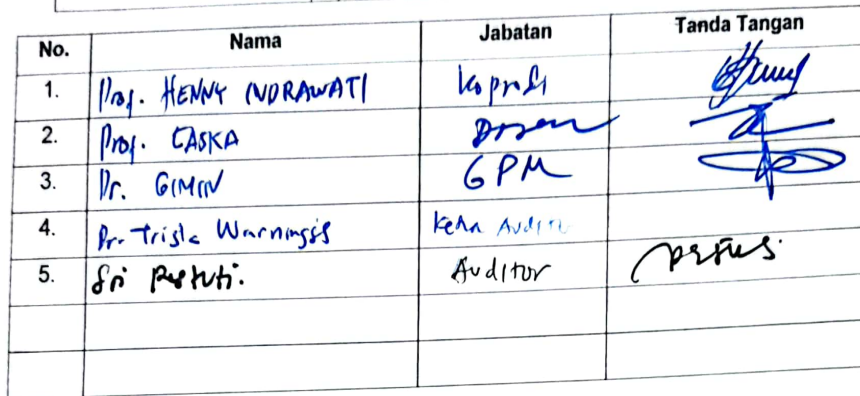 No. Nama Jabatan Tanda Tangan
1. Prof. HENNY INDRAWATI Koprodi
2. Prof. CASKA Dosen
3. Dr. GIMIN GPM
4. Dr. Trisla Warningsih Ketua Auditor
5. Sri Restuti. Auditor